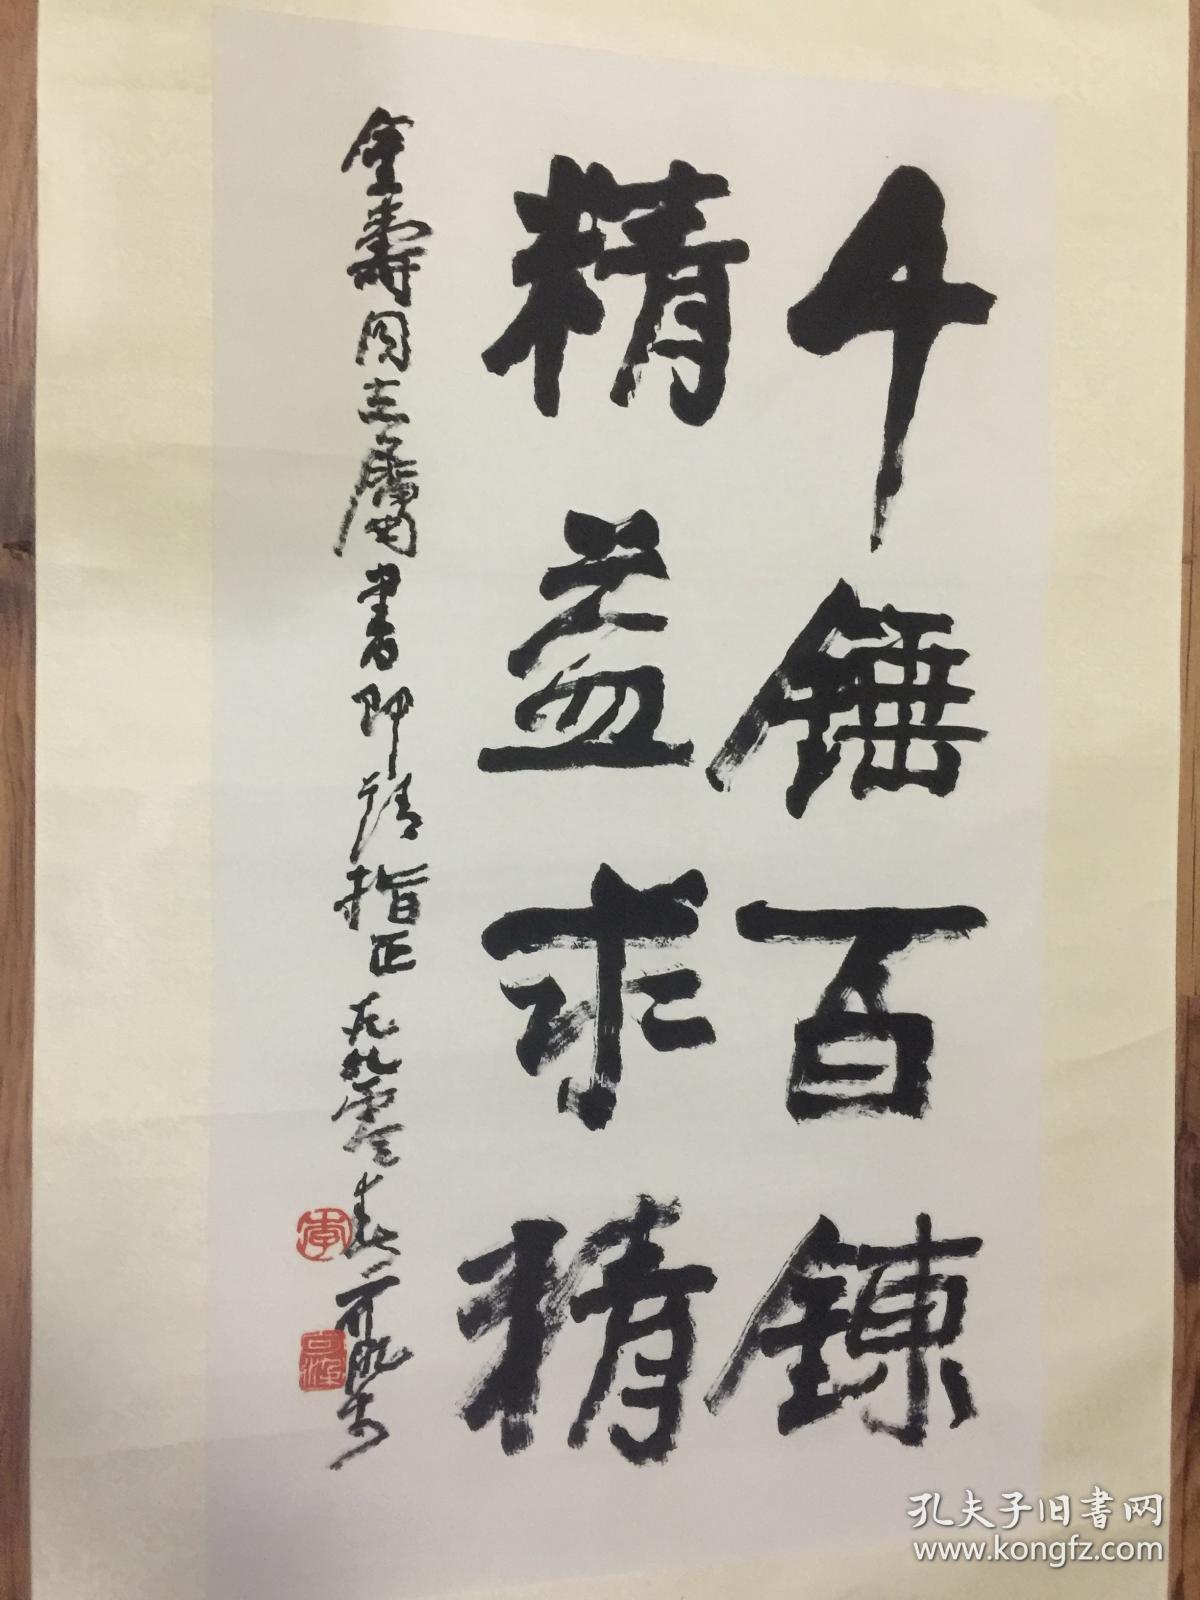 千錘百鍊
精益求精
金壽同志屬書即請指正 春
孔夫子旧書网
www.kongfz.com